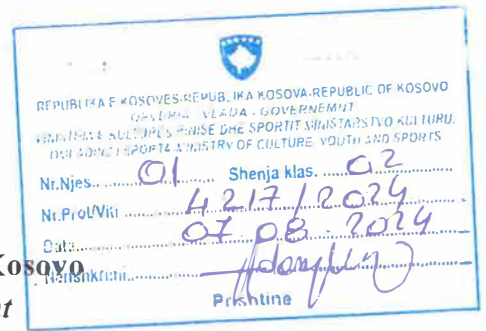 REPUBLIKA E KOSOVËS-REPUBLIKA KOSOVA-REPUBLIC OF KOSOVO
QEVERIA - VLADA - GOVERNEMNT
KULTURËS, RINISË DHE SPORTIT MINISTARSTVO KULTURU,
SPORTA MINISTRY OF CULTURE, YOUTH AND SPORTS
Nr.Njes. 01 Shenja klas. 02
Nr.Prot/Viti 4217/2024
Data 07.08.2024
Kosovo
Nënshkrimi
Prishtine